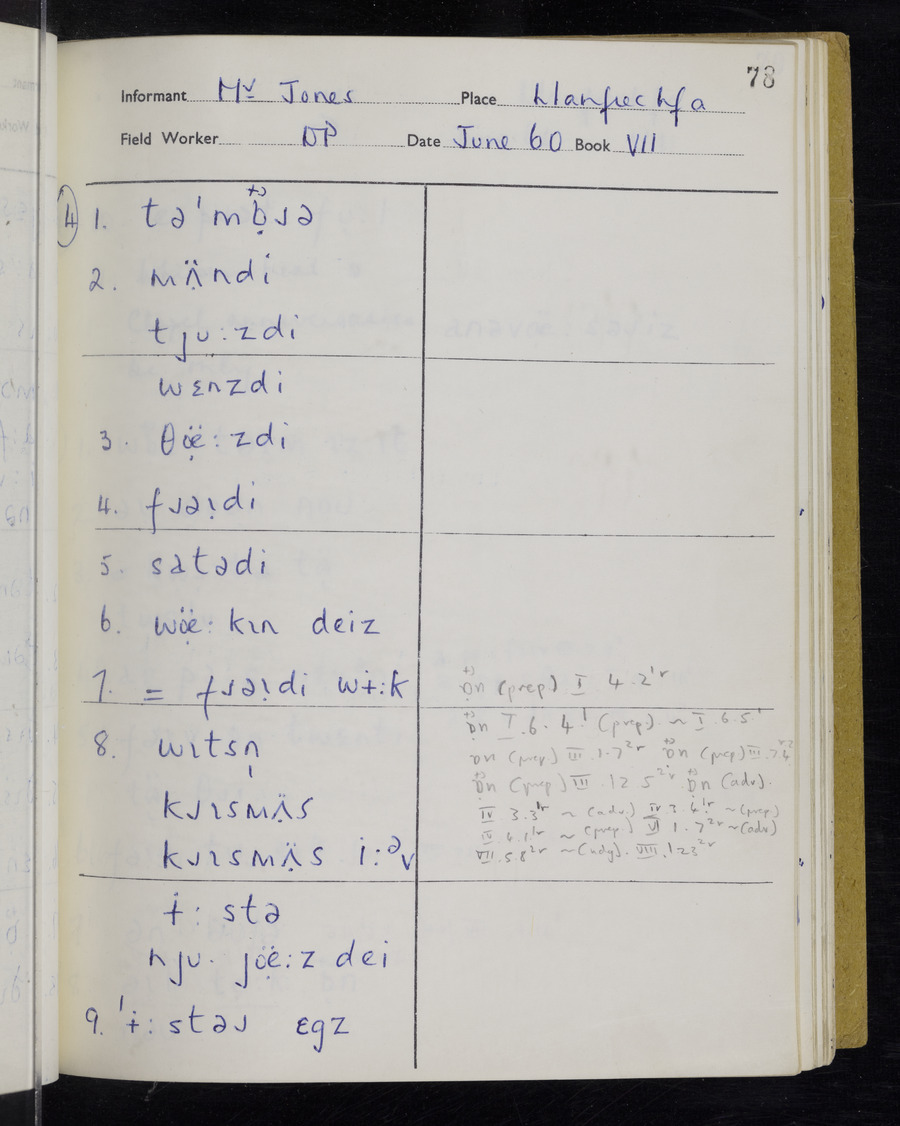 78
Informant Mr Jones Place Llanfrechfa
Field Worker DP Date June 60 Book VII
4 1. tə'mɒ̣ɹə
2. mʌ̈ndi
tju:zdi
wɛnzdi
3. θœ̣̈:zdi
4. fɹəɪ̣di
5. satədi
6. wœ̣̈:kɪn deiz
7. = fɹəɪ̣di wi̵:k
8. wɪtsn̩
kɹɪsmʌ̣̈s
kɹɪsmʌ̣̈s i:ᵊv
i̵:stə
nju· jœ̣̈:z dei
9. 'i̵:stəɹ ɛgz
ɒn (prep) I 4.2'r
ɒn I.6.4' (prep) ~ I.6.5'
ɒn (prep) III.1.7²r ɒn (prep) III.7.4
ɒn (prep) VII.12 5²r ɒn (adv).
IV 3.3'r ~ (adv) IV 3.4'r ~ (prep)
~ (prep) VI 1.7²r ~ (adv)
VII.5.8²r VIII.1 2 3²r